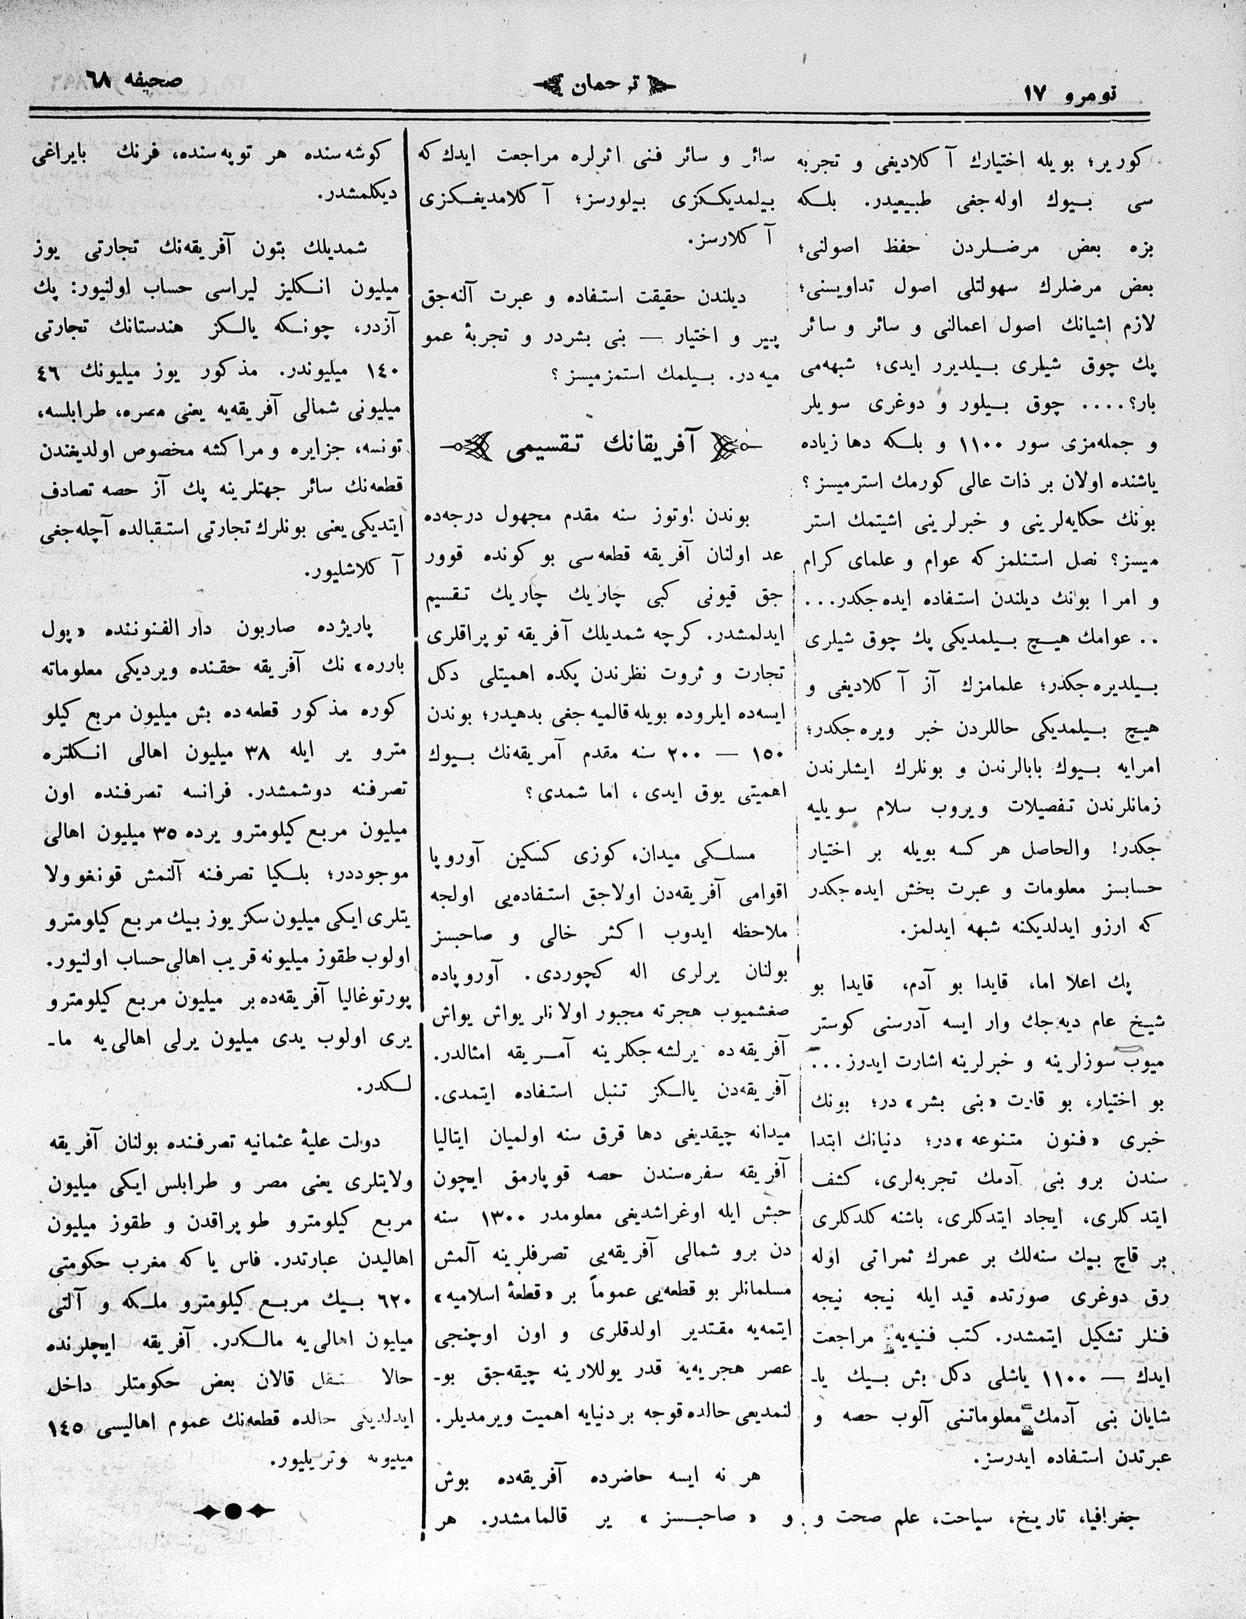 نومرو ١٧
ترجمان
صحیفه ٦٨
كوریر؛ بویله اختیارك آ كلادیغی و تجربه
سی بـیوك اوله‌جغی طبیعیدر. بلـكه
بزه بعض مرضـلردن حفظ اصولنی؛
بعض مرضلرك سهولتلی اصول تداویسنی؛
لازم اشیانك اصول اعمالنی و سائر و سائر
پك چوق شیلری بـیلدیرر ایدی؛ شبهه‌می
بار؟.... چوق بـیلور و دوغری سویلر
و جمله‌مزی سور ١١٠٠ و بلـكه دها زیاده
یاشنده اولان بر ذات عالی كورمك استرمیسز؟
بونك حكایه‌لرینی و خبرلرینی اشیتمك استر
میسز؟ نصل استنلمز كه عوام و علمای كرام
و امرا بونك دیلندن استفاده ایده‌جكدر...
.. عوامك هیـچ بـیلمدیكی پك چوق شیلری
بـیلدیره‌جكدر؛ علمامزك آز آ كلادیغی و
هیـچ بـیلمدیكی حاللردن خبر ویره‌جكدر؛
امرایه بـیوك بابالرندن و بونلرك ایشلرندن
زمانلرندن تفصیلات ویروب سلام سویلیه
جكدر! والحاصل هر كسه بویله بر اختیار
حسابسز معلومات و عبرت بخش ایده‌جكدر
كه ارزو ایدلدیكنه شبهه ایدلمز.
پك اعلا اما، قایدا بو آدم، قایدا بو
شیخ عام دیه‌جك وار ایسه آدرسنی كوستر
میوب سوزلرینه و خبرلرینه اشارت ایدرز...
بو اختیار، بو قارت «بنی بشر» در؛ بونك
خبری «فنون متنوعه» در؛ دنیانك ابتدا
سندن برو بنی آدمك تجربه‌لری، كشف
ایتدكلری، ایجاد ایتدكلری، باشنه كلدكلری
بر قاچ بیك سنه‌لك بر عمرك ثمراتی اوله
رق دوغری صورتده قید ایله نیجه نیجه
فنلر تشكیل ایتمشدر. كتب فنیه‌یه مراجعت
ایدك — ١١٠٠ یاشلی دكل بش بـیك یاـ
شایان بنی آدمك معلوماتنی آلوب حصه و
عبرتدن استفاده ایدرسز.
جغرافیا، تاریخ، سیاحت، علم صحت و
سائر و سائر فنی اثرلره مراجعت ایدك كه
بـیلمدیـككزی بـیلورسز؛ آ كلامدیغكزی
آ كلارسز.
دیلندن حقیقت استفاده و عبرت آلنه‌جق
پیر و اختیار — بنی بشردر و تجربۀ عمو
میه در. بـیلمك استمزمیسز؟
آفریقانك تـقسیمی
بوندن اوتوز سنه مقدم مجهول درجه‌ده
عد اولنان آفریقه قطعه‌سی بو كونده قوور
جق قیونی كبی چاریك چاریك تـقسیم
ایدلمشدر. كرچه شمدیلك آفریقه توپراقلری
تجارت و ثروت نظرندن پكده اهمیتلی دكل
ایسه‌ده ایلروده بویله قالمیه‌جغی بدهیدر؛ بوندن
١٥٠ — ٢٠٠ سنه مقدم آمریقه‌نك بـیوك
اهمیتی یوق ایدی، اما شمدی؟
مسلـكی میدان، كوزی كسكین آوروپا
اقوامی آفریقه‌دن اولاجق استفاده‌یی اولجه
ملاحظه ایدوب ا كثر خالی و صاحبسز
بولنان یرلری اله كچوردی. آوروپاده
صغشمیوب هجرته مجبور اولانلر یواش یواش
آفریقه‌ده یرلشه‌جكلرینه آمـریقه امثالدر.
آفریقه‌دن یالـكز تنبل استفاده ایتمدی.
میدانه چیقدیغی دها قرق سنه اولمیان ایتالیا
آفریقه سفره‌سندن حصه قوپارمق ایچون
حبش ایله اوغراشدیغی معلومدر ١٣٠٠ سنه
دن برو شمالی آفریقه‌یی تصرفلرینه آلمش
مسلمانلر بو قطعه‌یی عموماً بر «قطعۀ اسلامیه»
ایتمه‌یه مقتدیر اولدقلری و اون اوچنجی
عصر هجریه‌یه قدر یوللارینه چیقه‌جق بوـ
لنمدیعی حالده قوجه بر دنیایه اهمیت ویرمدیلر.
هر نه ایسه حاضرده آفریقه‌ده بوش
و «صاحبـسز» یر قالمامشدر. هر
كوشه‌سنده هر توپه‌سنده، فرنك بایراغی
دیكلمشدر.
شمدیلك بتون آفریقه‌نك تجارتی یوز
میلیون انـكلیز لیراسی حساب اولنیور: پك
آزدر، چونـكه یالـكز هندستانك تجارتی
١٤٠ میلیوندر. مذكور یوز میلیونك ٤٦
میلیونی شمالی آفریقه‌یه یعنی مصره، طرابلسه،
تونسه، جزایره و مراكشه مخصوص اولدیغندن
قطعه‌نك سائر جهتلرینه پك آز حصه تصادف
ایتدیكی یعنی بونلرك تجارتی استـقبالده آچله‌جغی
آ كلاشلیور.
پاریژده صاربون دار الفنوننده «پول
بارره» نك آفریقه حقنده ویردیكی معلوماته
كوره مذكور قطعه‌ده بش میلیون مربع كیلو
مترو یر ایله ٣٨ میلیون اهالی انـكلتره
تصرفنه دوشمشدر. فرانسه تصرفنده اون
میلیون مربـع كیلومترو یرده ٣٥ میلیون اهالی
موجوددر؛ بلـكیا تصرفنه آلنمش قونغو ولا
یتلری ایكی میلیون سكز یوز بیك مربع كیلومترو
اولوب طقوز میلیونه قریب اهالی حساب اولنیور.
پورتوغالیا آفریقه‌ده بر میلیون مربع كیلومترو
یری اولوب یدی میلیون یرلی اهالی‌یه ماـ
لـكدر.
دولت علیۀ عثمانیه تصرفنده بولنان آفریقه
ولایتلری یعنی مصر و طرابلس ایكی میلیون
مربع كیلومترو طوپراقدن و طقوز میلیون
اهالیدن عبارتدر. فاس یا كه مغرب حكومتی
٦٢٠ بـیك مربـع كیلومترو ملـكه و آلتی
میلیون اهالی‌یه مالـكدر. آفریقه ایچلرنده
حالا قالان بعض حكومتلر داخل
ایدلدیكی حالده قطعه‌نك عموم اهالیسی ١٤٥
میلیونه